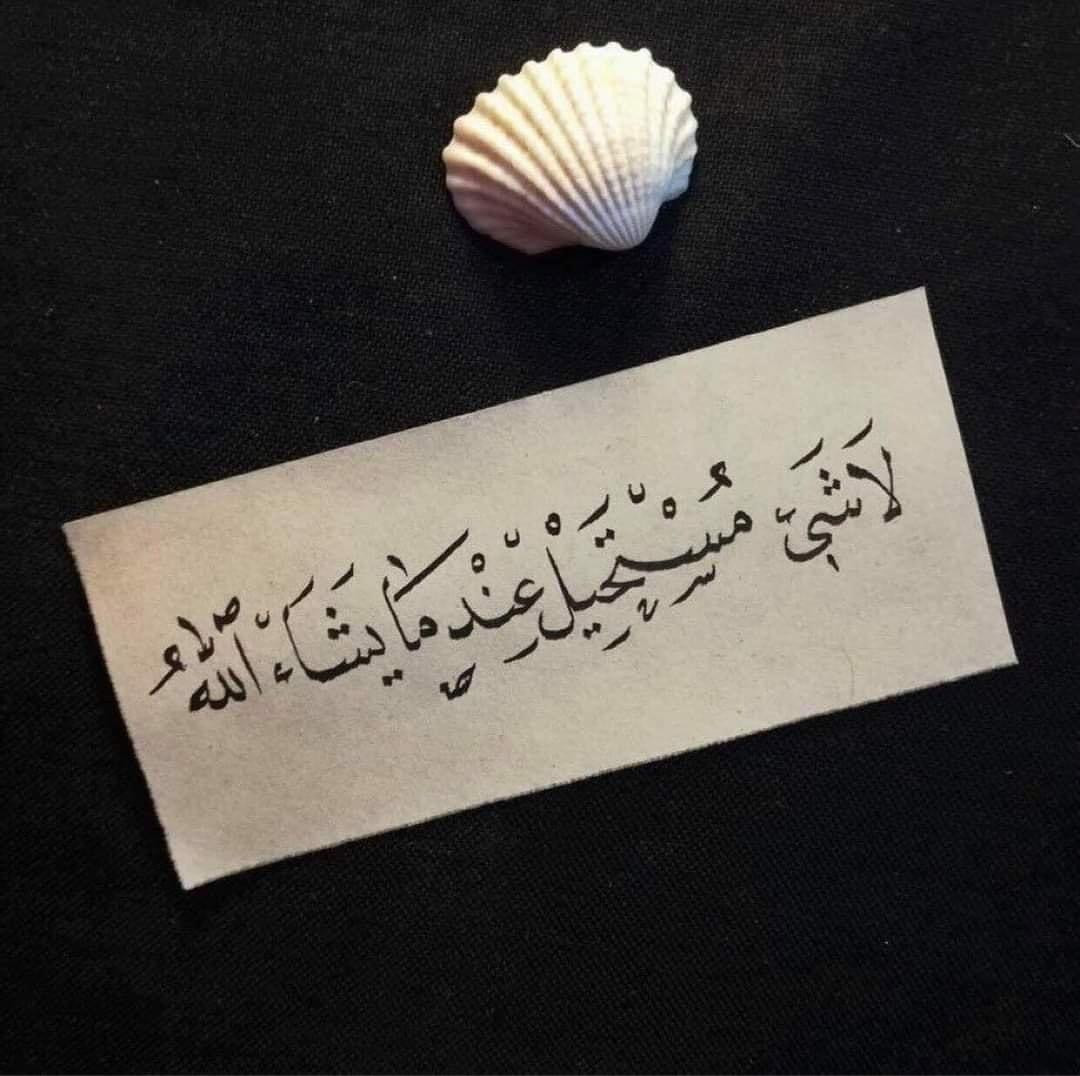 لَا شَيَّ مُسْتَحِيل عِنْدِمَا يَشَاءَ ٱللّٰهُ